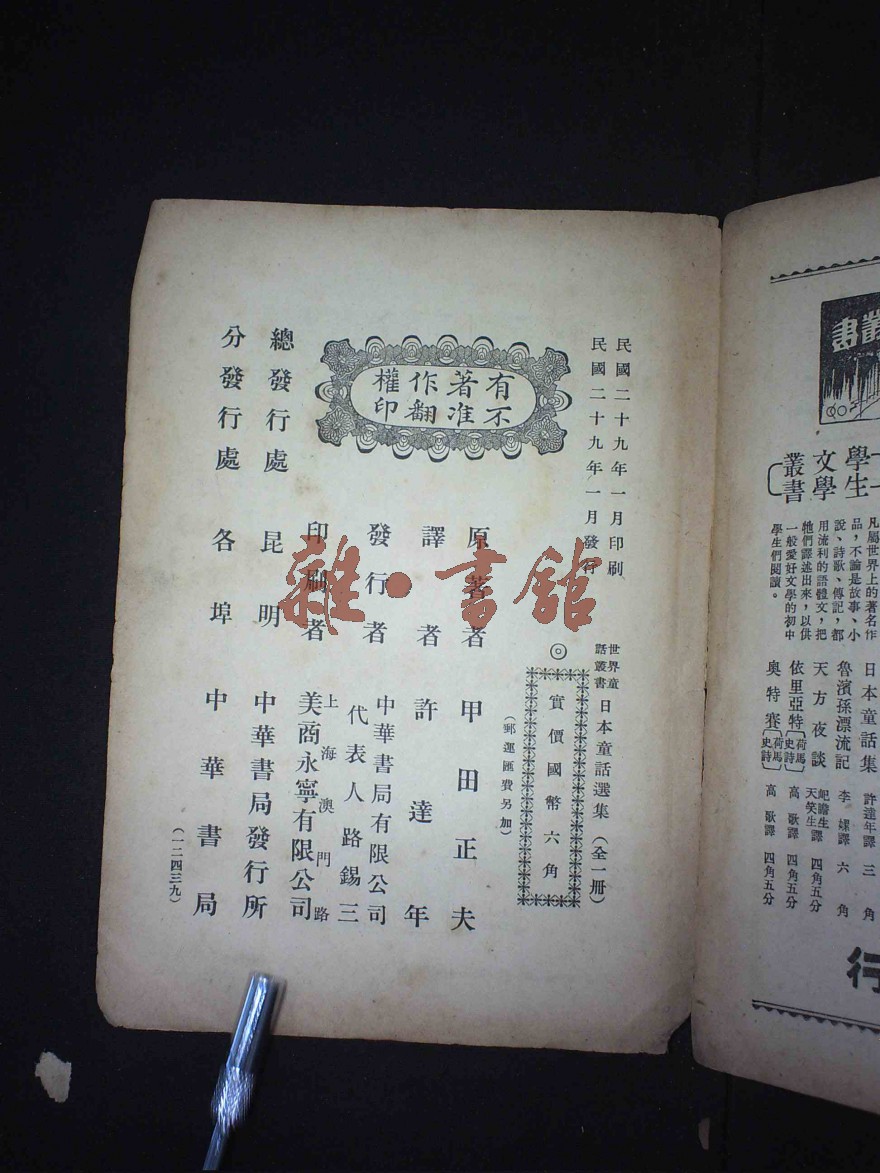 民國二十九年一月印刷
民國二十九年一月發行
世界童話叢書 日本童話選集（全一冊）
◎實價國幣六角
（郵運匯費另加）
有著作權
不准翻印
原著者 甲田正夫
譯者 許達年
發行者 中華書局有限公司
代表人路錫三
印刷者 上海澳門路
美商永寧有限公司
總發行處 昆明 中華書局發行所
分發行處 各埠 中華書局
（一二四三九）
雜·書館
叢書
學生
文學
叢書
凡屬世界上的著名作
品，不論是故事、小
說、詩歌、傳記，都
用流利的語體文，把
牠們譯述出來，以供
一般愛好文學的初中
學生們閱讀。
日本童話集 許達年譯 三角
魯濱孫漂流記 李嫘譯 六角
天方夜談 紀瞻生譯 天笑生譯 四角五分
依里亞特（荷馬史詩） 高歌譯 四角五分
奧特賽（荷馬史詩） 高歌譯 四角五分
行